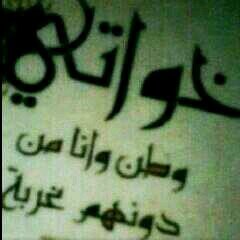 خواتي
وطن وانا من
دونهم غربة